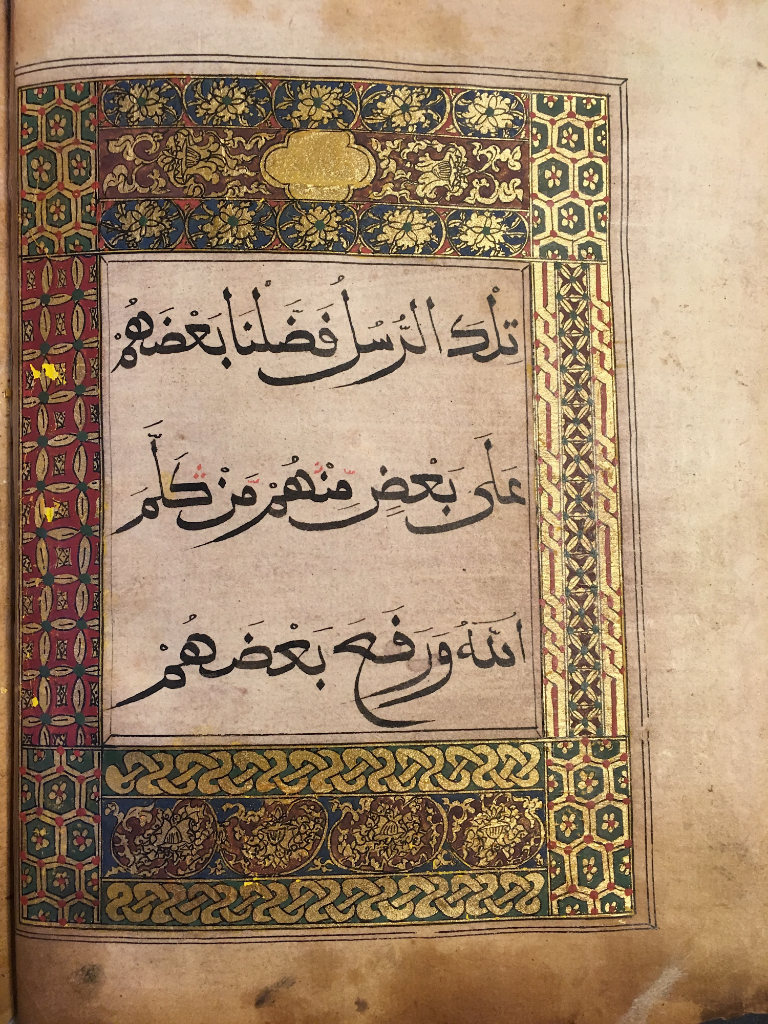 تِلْكَ الرُّسُلُ فَضَّلْنَا بَعْضَهُمْ
عَلَى بَعْضٍ مِّنْهُمْ مَّنْ كَلَّمَ
اللَّهُ وَرَفَعَ بَعْضَهُمْ